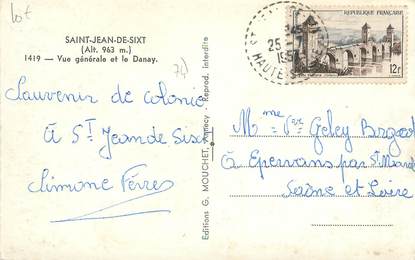 lot
SAINT-JEAN-DE-SIXT
(Alt. 963 m.)
1419 - Vue générale et le Danay.
Souvenir de colonie
à St Jean de Sixt
Simone
Editions G. MOUCHET, Annecy - Reprod. Interdite
REPUBLIQUE FRANÇAISE
12f
25
HAUTE
Mme Vve Geley
à Epervans par St Marcel
Saône et Loire